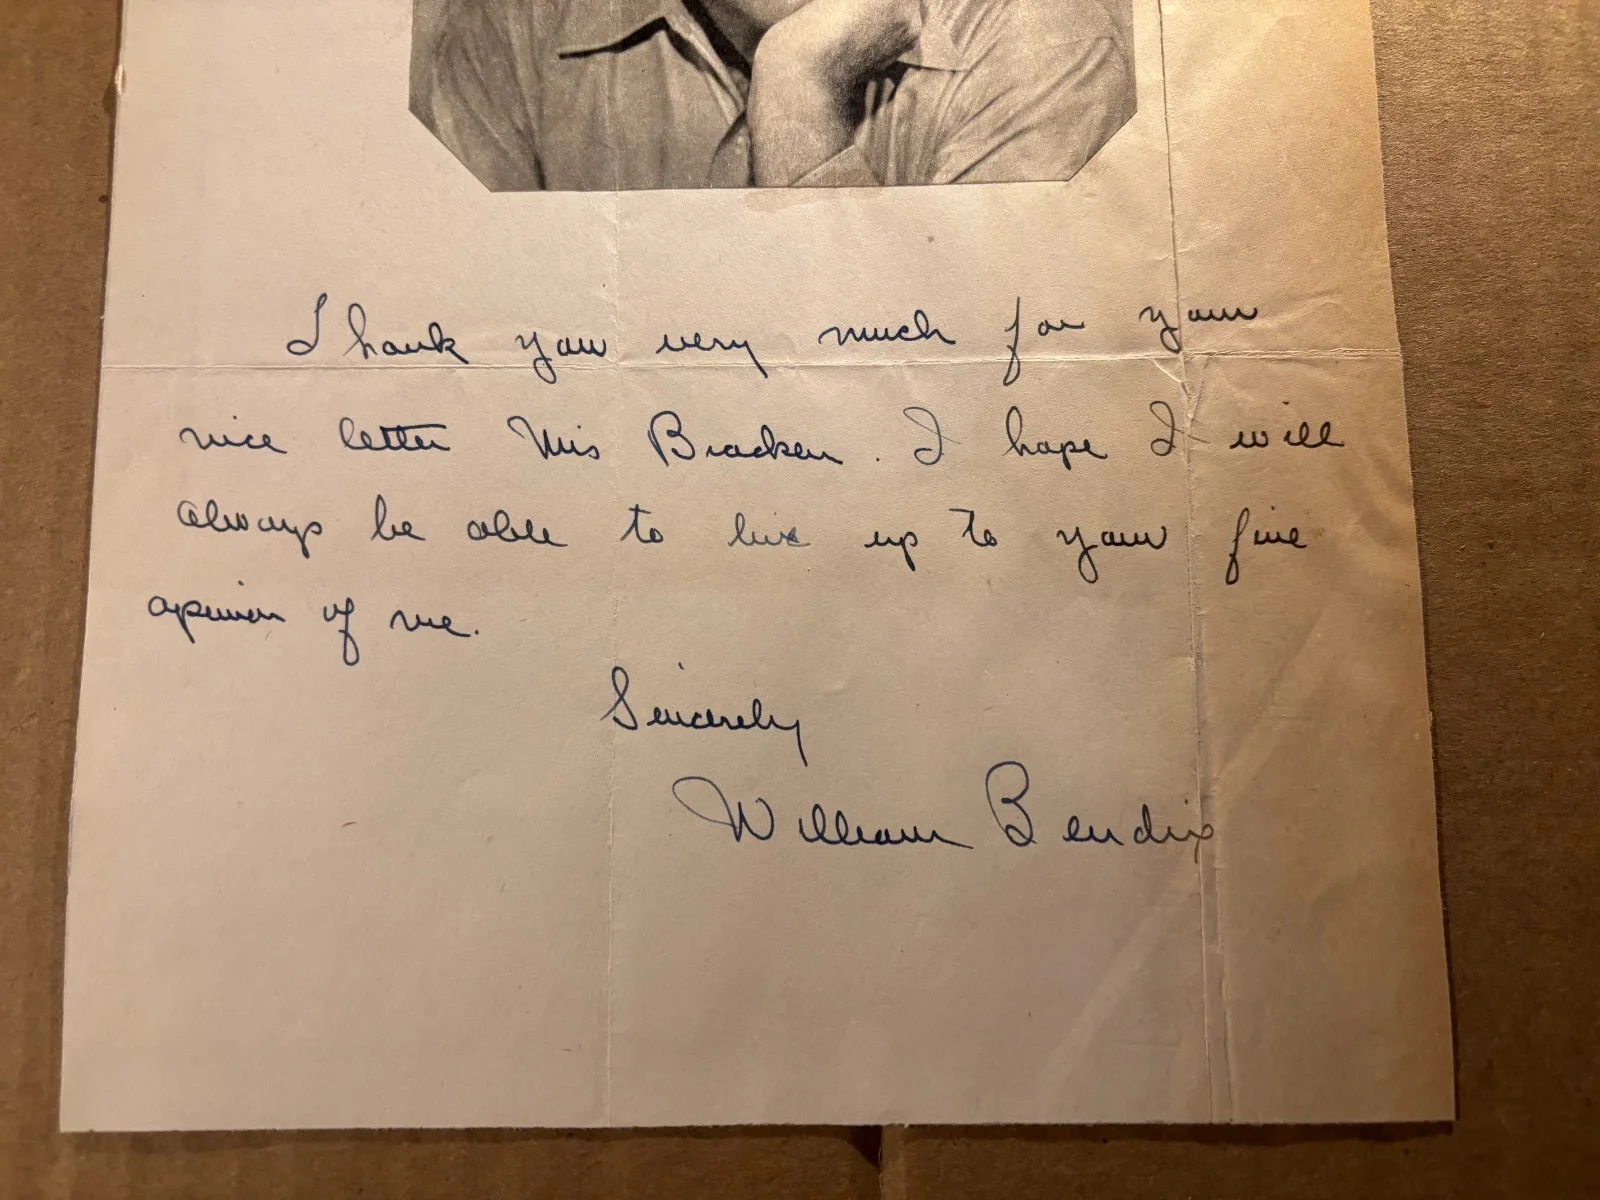 Thank you very much for your
nice letter Mrs Bracken. I hope I will
always be able to live up to your fine
opinion of me.
Sincerely
William Bendix